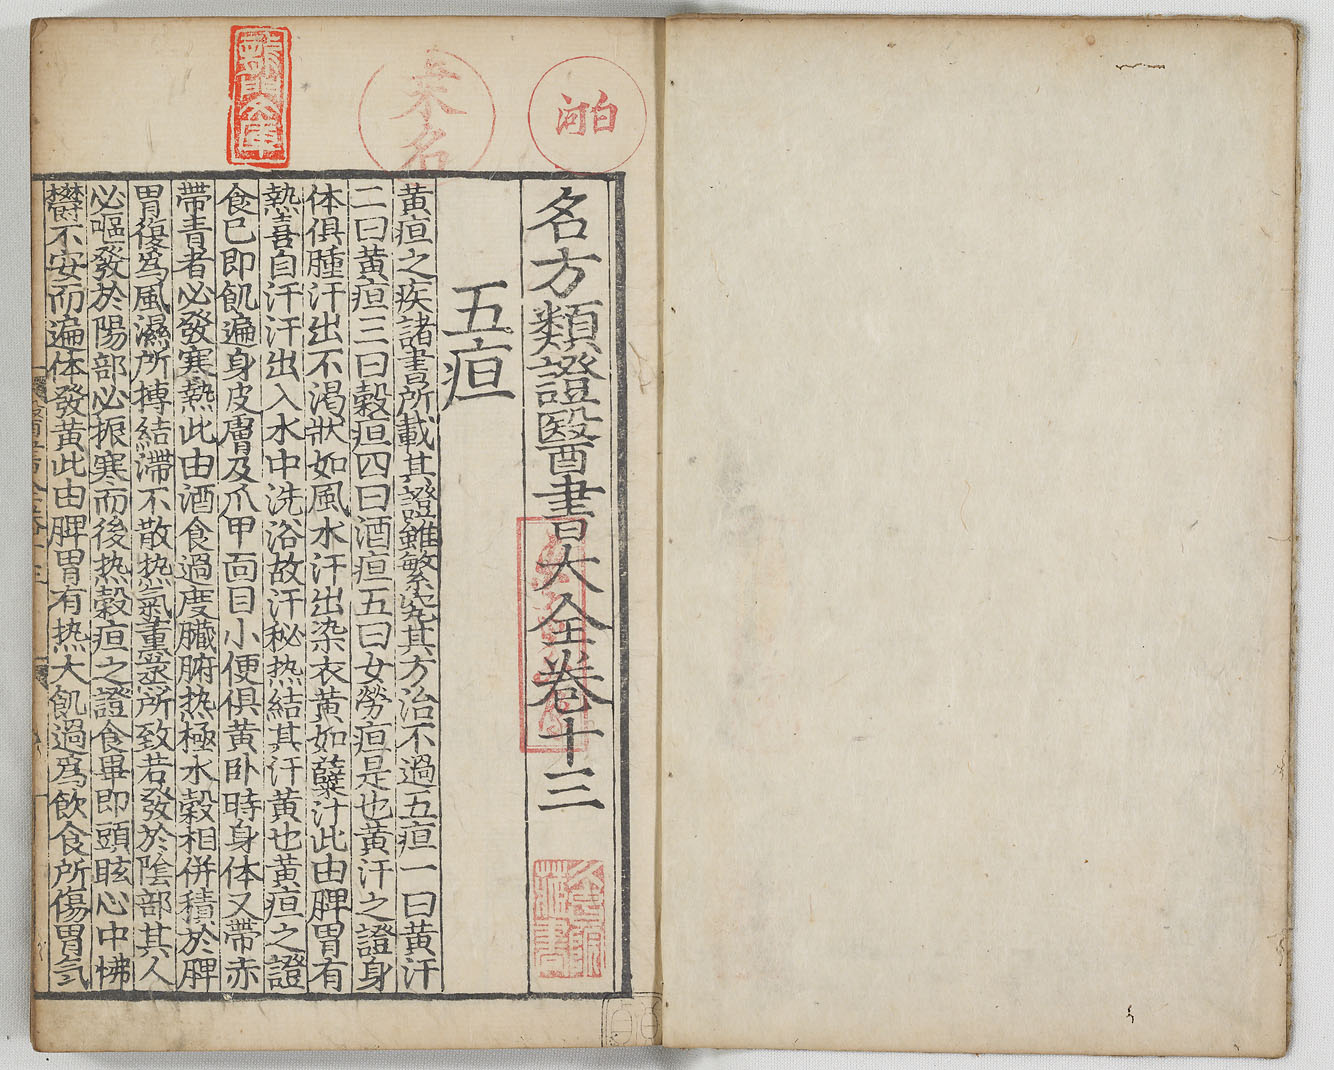 名方類證醫書大全卷十三
五疸
黄疸之疾諸書所載其證雖繁究其方治不過五疸一曰黄汗
二曰黄疸三曰穀疸四曰酒疸五曰女勞疸是也黄汗之證身
体俱腫汗出不渴狀如風水汗出染衣黄如蘗汁此由脾胃有
熱善自汗汗出入水中洗浴故汗秘热結其汗黄也黄疸之證
食已即飢遍身皮膚及爪甲面目小便俱黄卧時身体又帶赤
帶青者必發寒熱此由酒食過度臟腑热極水穀相併積於脾
胃復爲風濕所搏結滯不散热氣薰蒸所致若發於陰部其人
必嘔發於陽部必振寒而後热穀疸之證食畢即頭眩心中怫
欝不安而遍体發黄此由脾胃有热大飢過爲飲食所傷胃氣
龍門文庫
白河